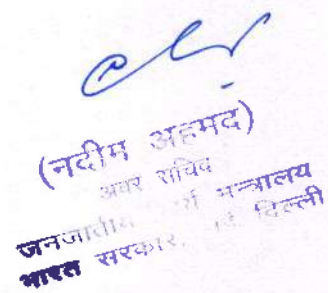 (नदीम अहमद)
अवर सचिव
जनजातीय मन्त्रालय
भारत सरकार, दिल्ली